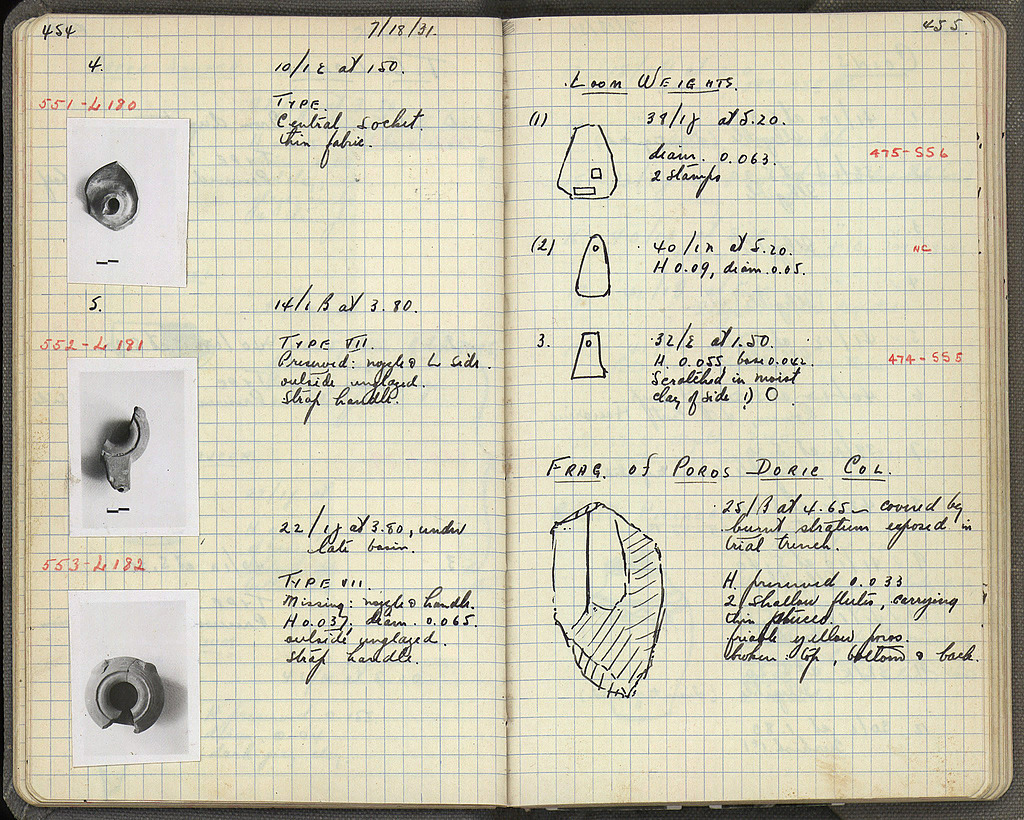 454
7/18/31.
4.
10/1 E at 1.50.
551-L 180
TYPE.
Central Socket.
thin fabric.
5.
14/1 B at 3.80.
552-L 181
TYPE VII.
Preserved: nozzle & L side.
outside unglazed.
Strap handle.
22/ at 3.80, under
late basin.
553-L 182
TYPE VII.
Missing: nozzle & handle.
H 0.037; diam. 0.065.
outside unglazed.
Strap handle.
455.
LOOM WEIGHTS.
(1)
at 5.20.
diam. 0.063.
2 stamps
475-SS6
(2)
40/ at 5.20.
H 0.09, diam. 0.05.
NC
3.
32/E at 1.50.
H. 0.055, base 0.042.
Scratched in moist
clay of side 1) O
474-SS5
FRAG. of POROS DORIC COL.
25/B at 4.65 covered by
burnt stratum exposed in
trial trench.
H. preserved 0.033
2 shallow flutes, carrying
thin stucco.
friable yellow poros.
broken: top, bottom & back.